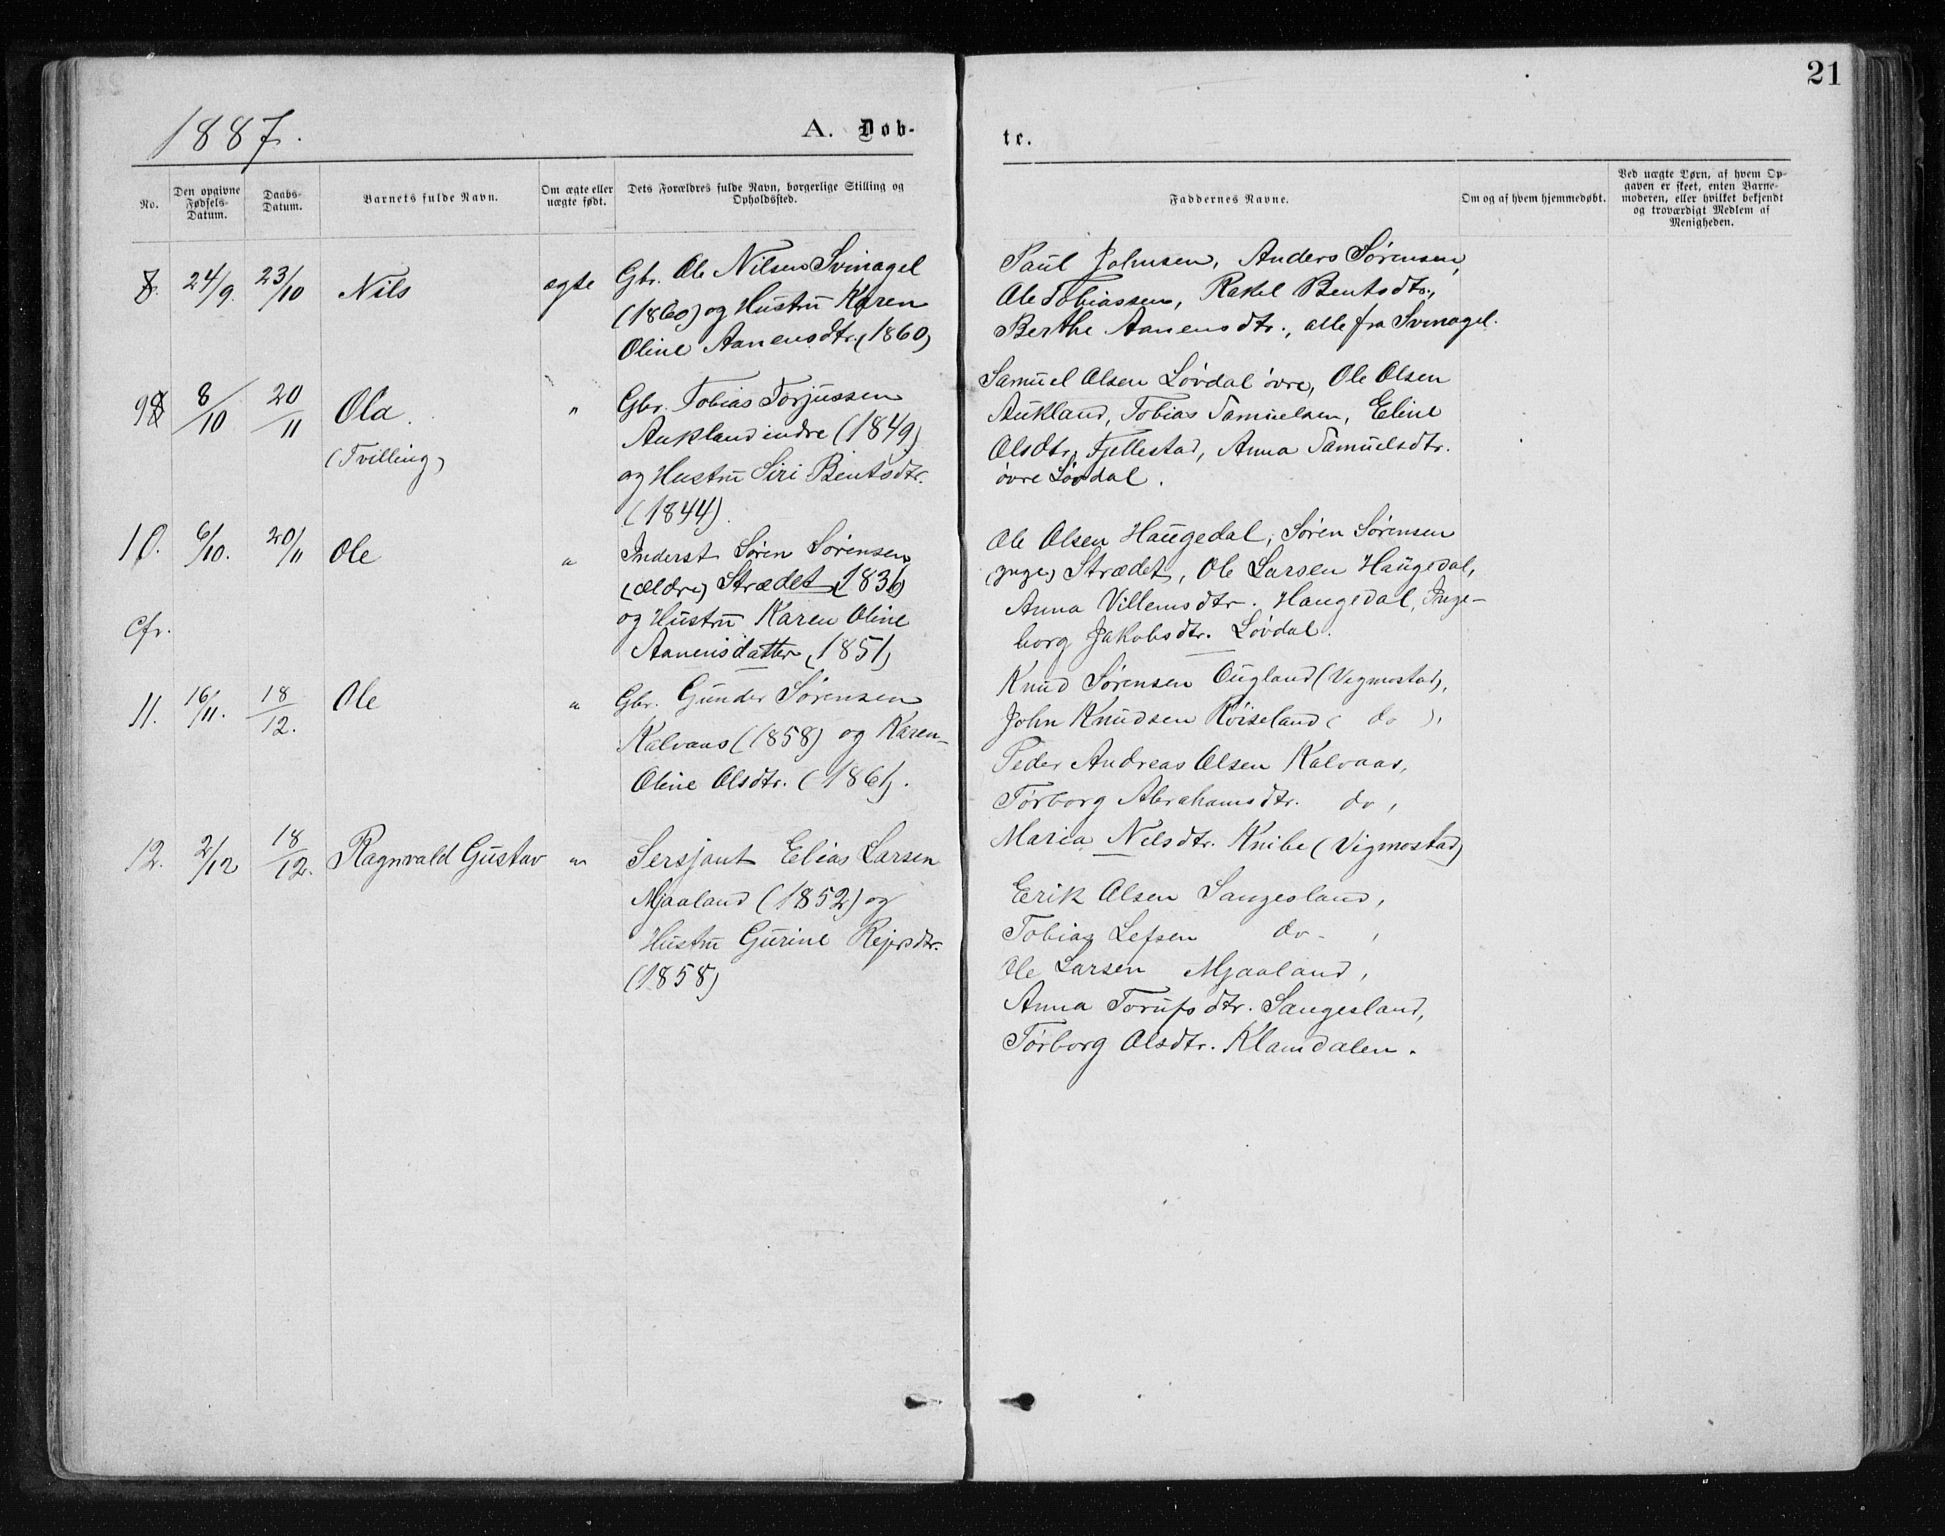 21
1887.
A. Døb-
te.
No.
Den opgivne Fødsels-Datum.
Daabs-Datum.
Barnets fulde Navn.
Om ægte eller uægte født.
Dets Forældres fulde Navn, borgerlige Stilling og Opholdssted.
Faddernes Navne.
Om og af hvem hjemmedøbt.
Ved uægte Børn, af hvem Op-
gaven er skeet, enten Barne-
moderen, eller hvilket bekjendt
og troværdigt Medlem af
Menigheden.
8. 24/9. 23/10 Nils ægte
Gbr. Ole Nilsen Svinagel
(1860) og Hustru Karen
Oline Aanensdtr. (1860)
Paul Johnsen, Anders Sørensen,
Ole Tobiassen, Rakel Bentsdtr.,
Berthe Aanensdtr., alle fra Svinagel.
9 8/10 20/11 Ola. "
(Tvilling)
Gbr. Tobias Torjussen
Aukland indre (1849)
og Hustru Siri Bentsdtr.
(1844).
Samuel Olsen Løvdal øvre, Ole Olsen
Aukland, Tobias Samuelsen, Eline
Olsdtr. Fjellestad, Anna Samuelsdtr.
øvre Løvdal.
10. 6/10. 20/11 Ole "
Cfr.
Inderst Søren Sørensen
(ældre) Strædet (1836)
og Hustru Karen Oline
Aanensdatter (1851)
Ole Olsen Haugedal, Søren Sørensen
(ynge) Strædet, Ole Larsen Haugedal,
Anna Villemsdtr. Haugedal, Inge-
borg Jakobsdtr. Løvdal.
11. 16/11. 18/12. Ole "
Gbr. Gunder Sørensen
Kalvaas (1858) og Karen-
Oline Olsdtr. (1861).
Knud Sørensen Ougland (Vigmostad),
John Knudsen Røiseland (do),
Peder Andreas Olsen Kalvaas,
Tørborg Abrahamsdtr. do,
Maria Nilsdtr. Knibe (Vigmostad)
12. 2/12 18/12. Ragnvald Gustav "
Sersjant Elias Larsen
Mjaaland (1852) og
Hustru Gurine Rejersdtr.
(1858)
Erik Olsen Sangesland,
Tobias Lefsen do,
Ole Larsen Mjaaland,
Anna Torufsdtr. Sangesland,
Tørborg Olsdtr. Klamdalen.